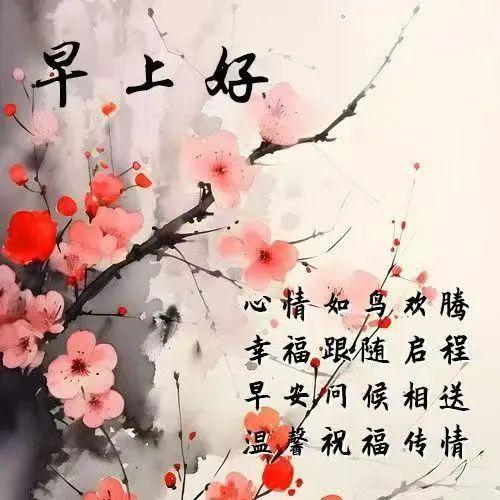 早上好
心情如鸟欢腾
幸福跟随启程
早安问候相送
温馨祝福传情